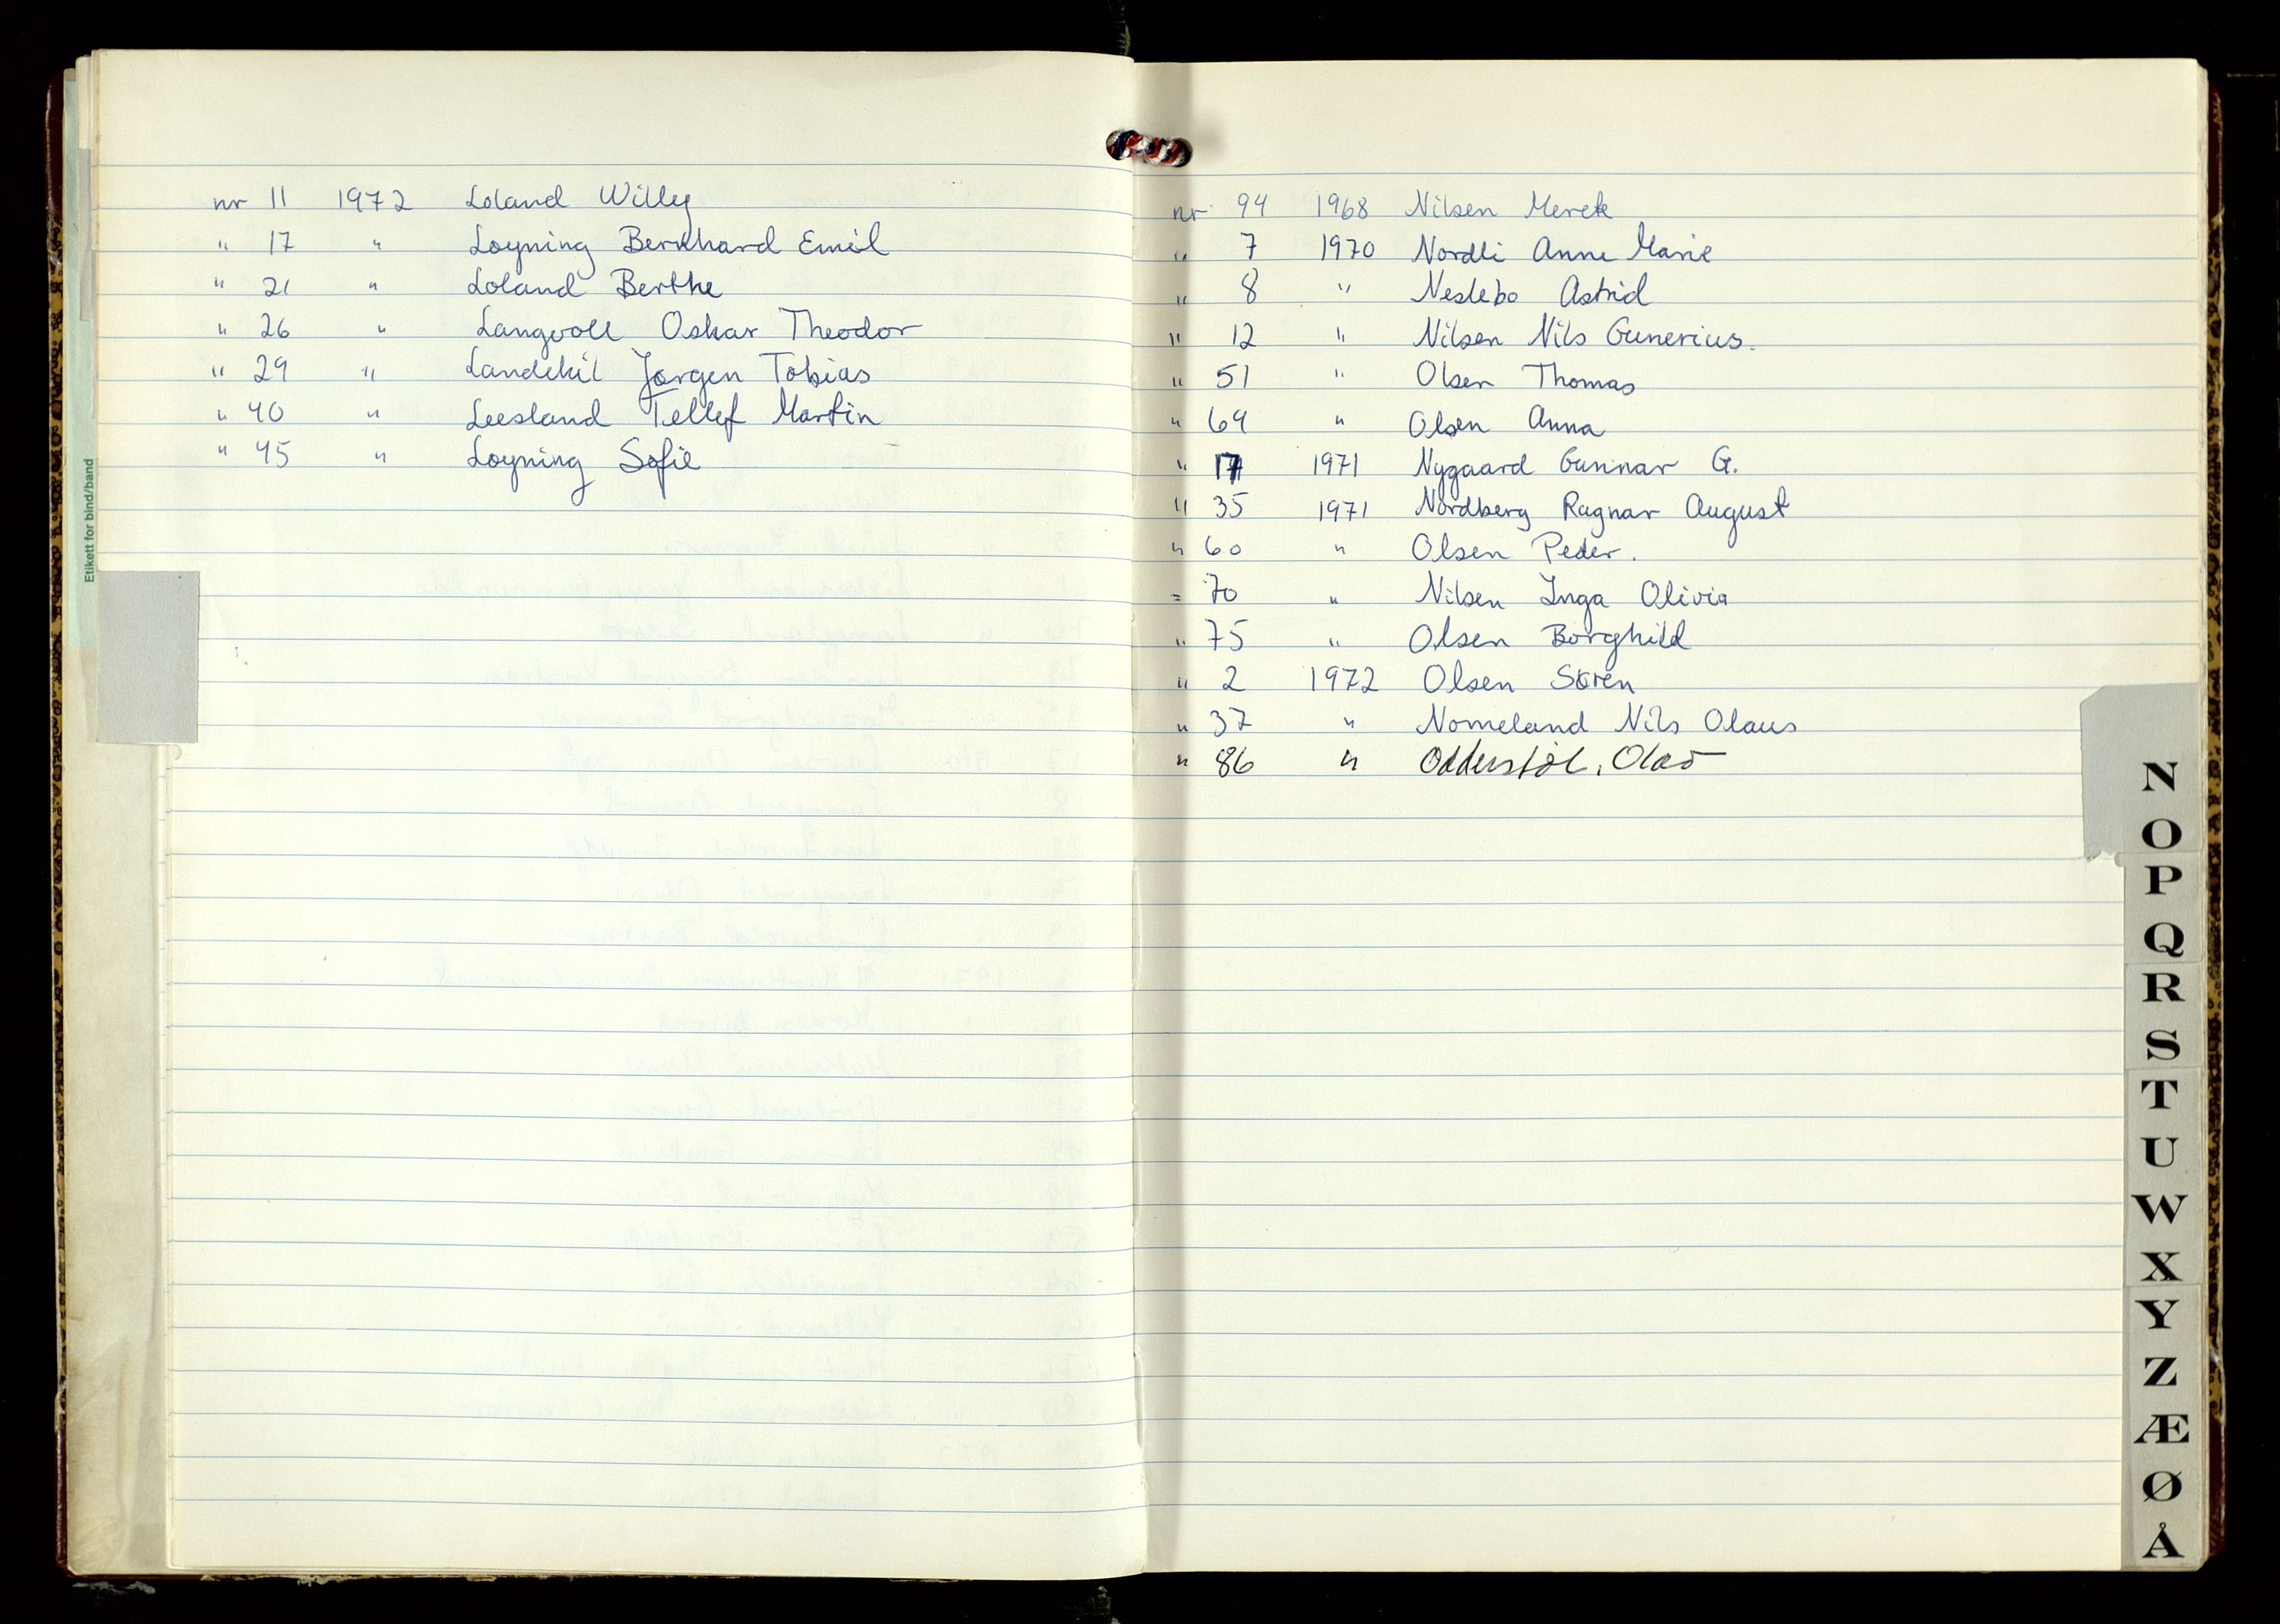 nr 11 1972 Loland Willy
" 17 " Løyning Bernhard Emil
" 21 " Loland Berthe
" 26 " Langvoll Oskar Theodor
" 29 " Landekil Jørgen Tobias
" 40 " Leesland Tellef Martin
" 45 " Løyning Sofie
Etikett for bind/band
nr 94 1968 Nilsen Merete
" 7 1970 Nordli Anne Marie
" 8 " Neslebø Astrid
" 12 " Nilsen Nils Gunerius.
" 51 " Olsen Thomas
" 64 " Olsen Anna
" 17 1971 Nygaard Gunnar G.
" 35 1971 Nordberg Ragnar August
" 60 " Olsen Peder.
" 70 " Nilsen Inga Olivia
" 75 " Olsen Borghild
" 2 1972 Olsen Søren
" 37 " Nomeland Nils Olaus
" 86 " Odderstøl, Olav
N
O
P
Q
R
S
T
U
W
X
Y
Z
Æ
Ø
Å